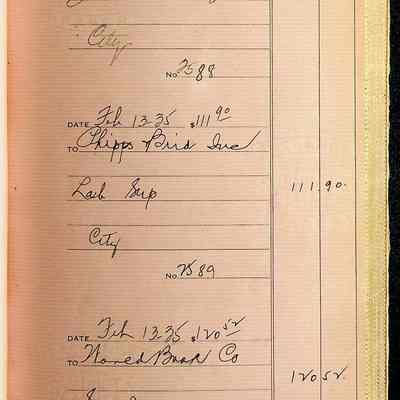 City
No. 7588
DATE Feb 13-35 $111 90
TO Phipps Bird Inc
Lab Sup 111.90
City
No. 7589
DATE Feb 13-35 $120 52
TO Book Co
120 52